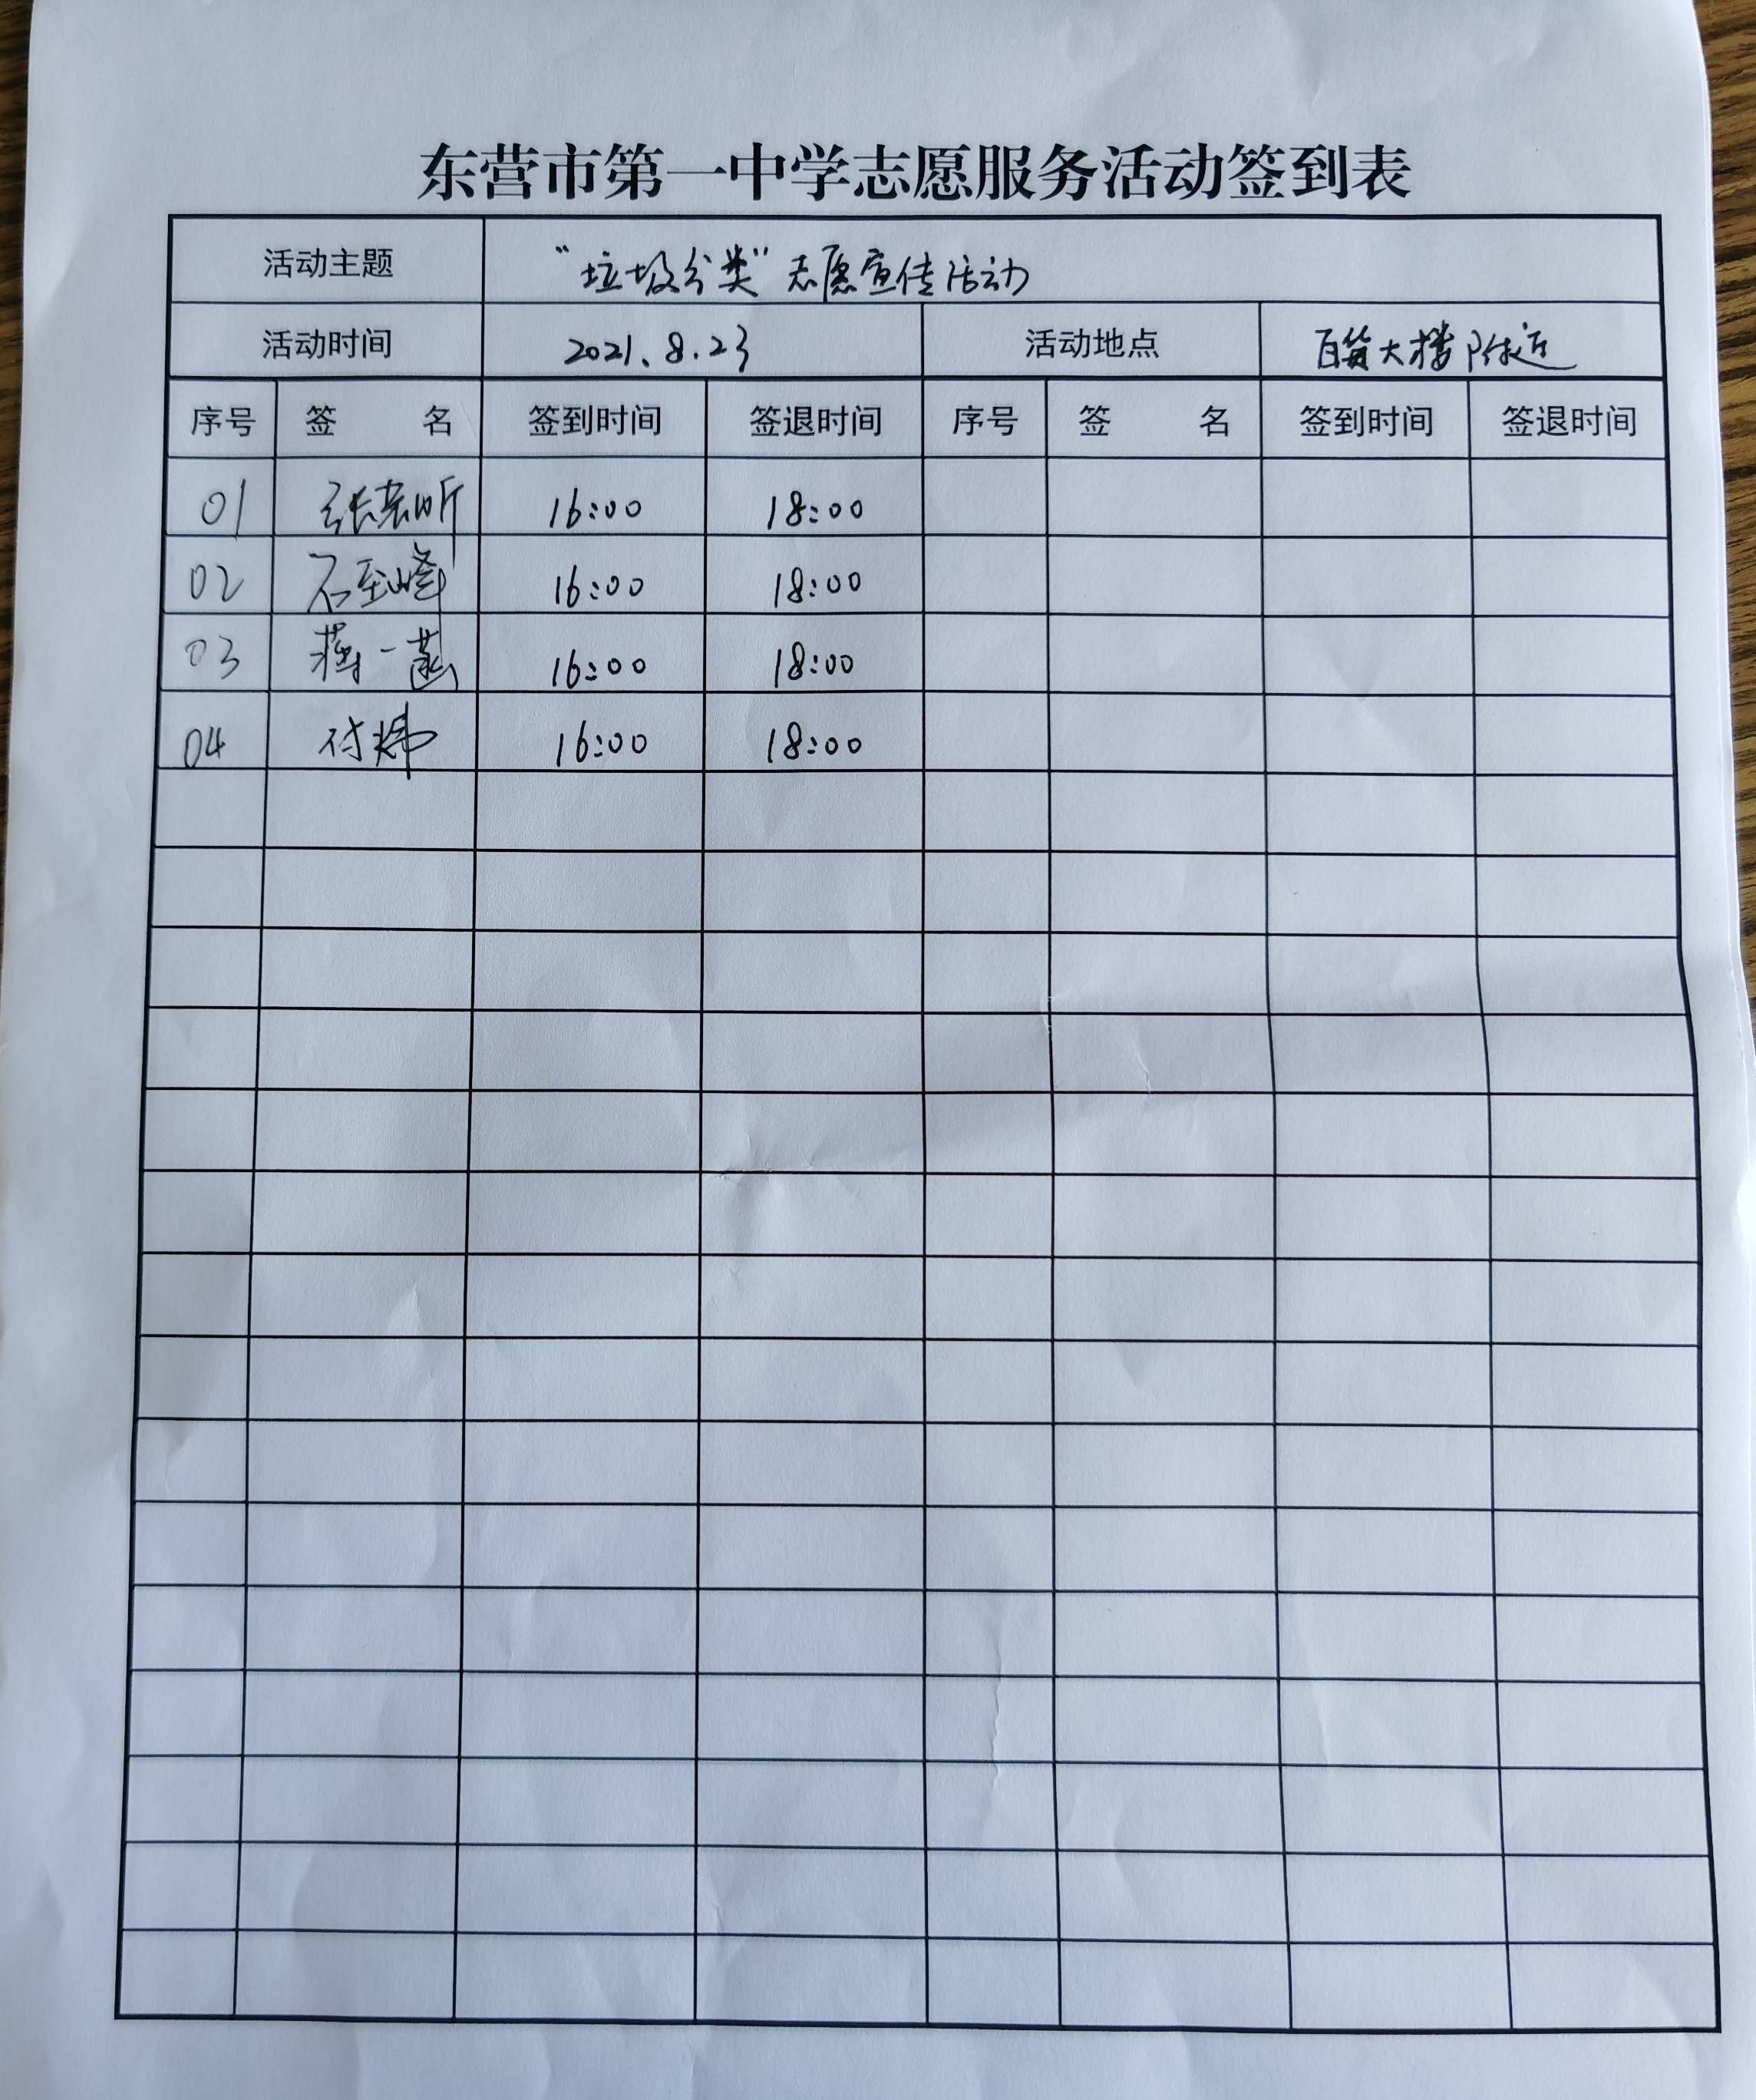 东营市第一中学志愿服务活动签到表
活动主题 “垃圾分类”志愿宣传活动
活动时间 2021.8.23 活动地点 百货大楼附近
序号 签名 签到时间 签退时间 序号 签名 签到时间 签退时间
01 张 昕 16:00 18:00
02 石至峰 16:00 18:00
03 一菡 16:00 18:00
04 付炜 16:00 18:00